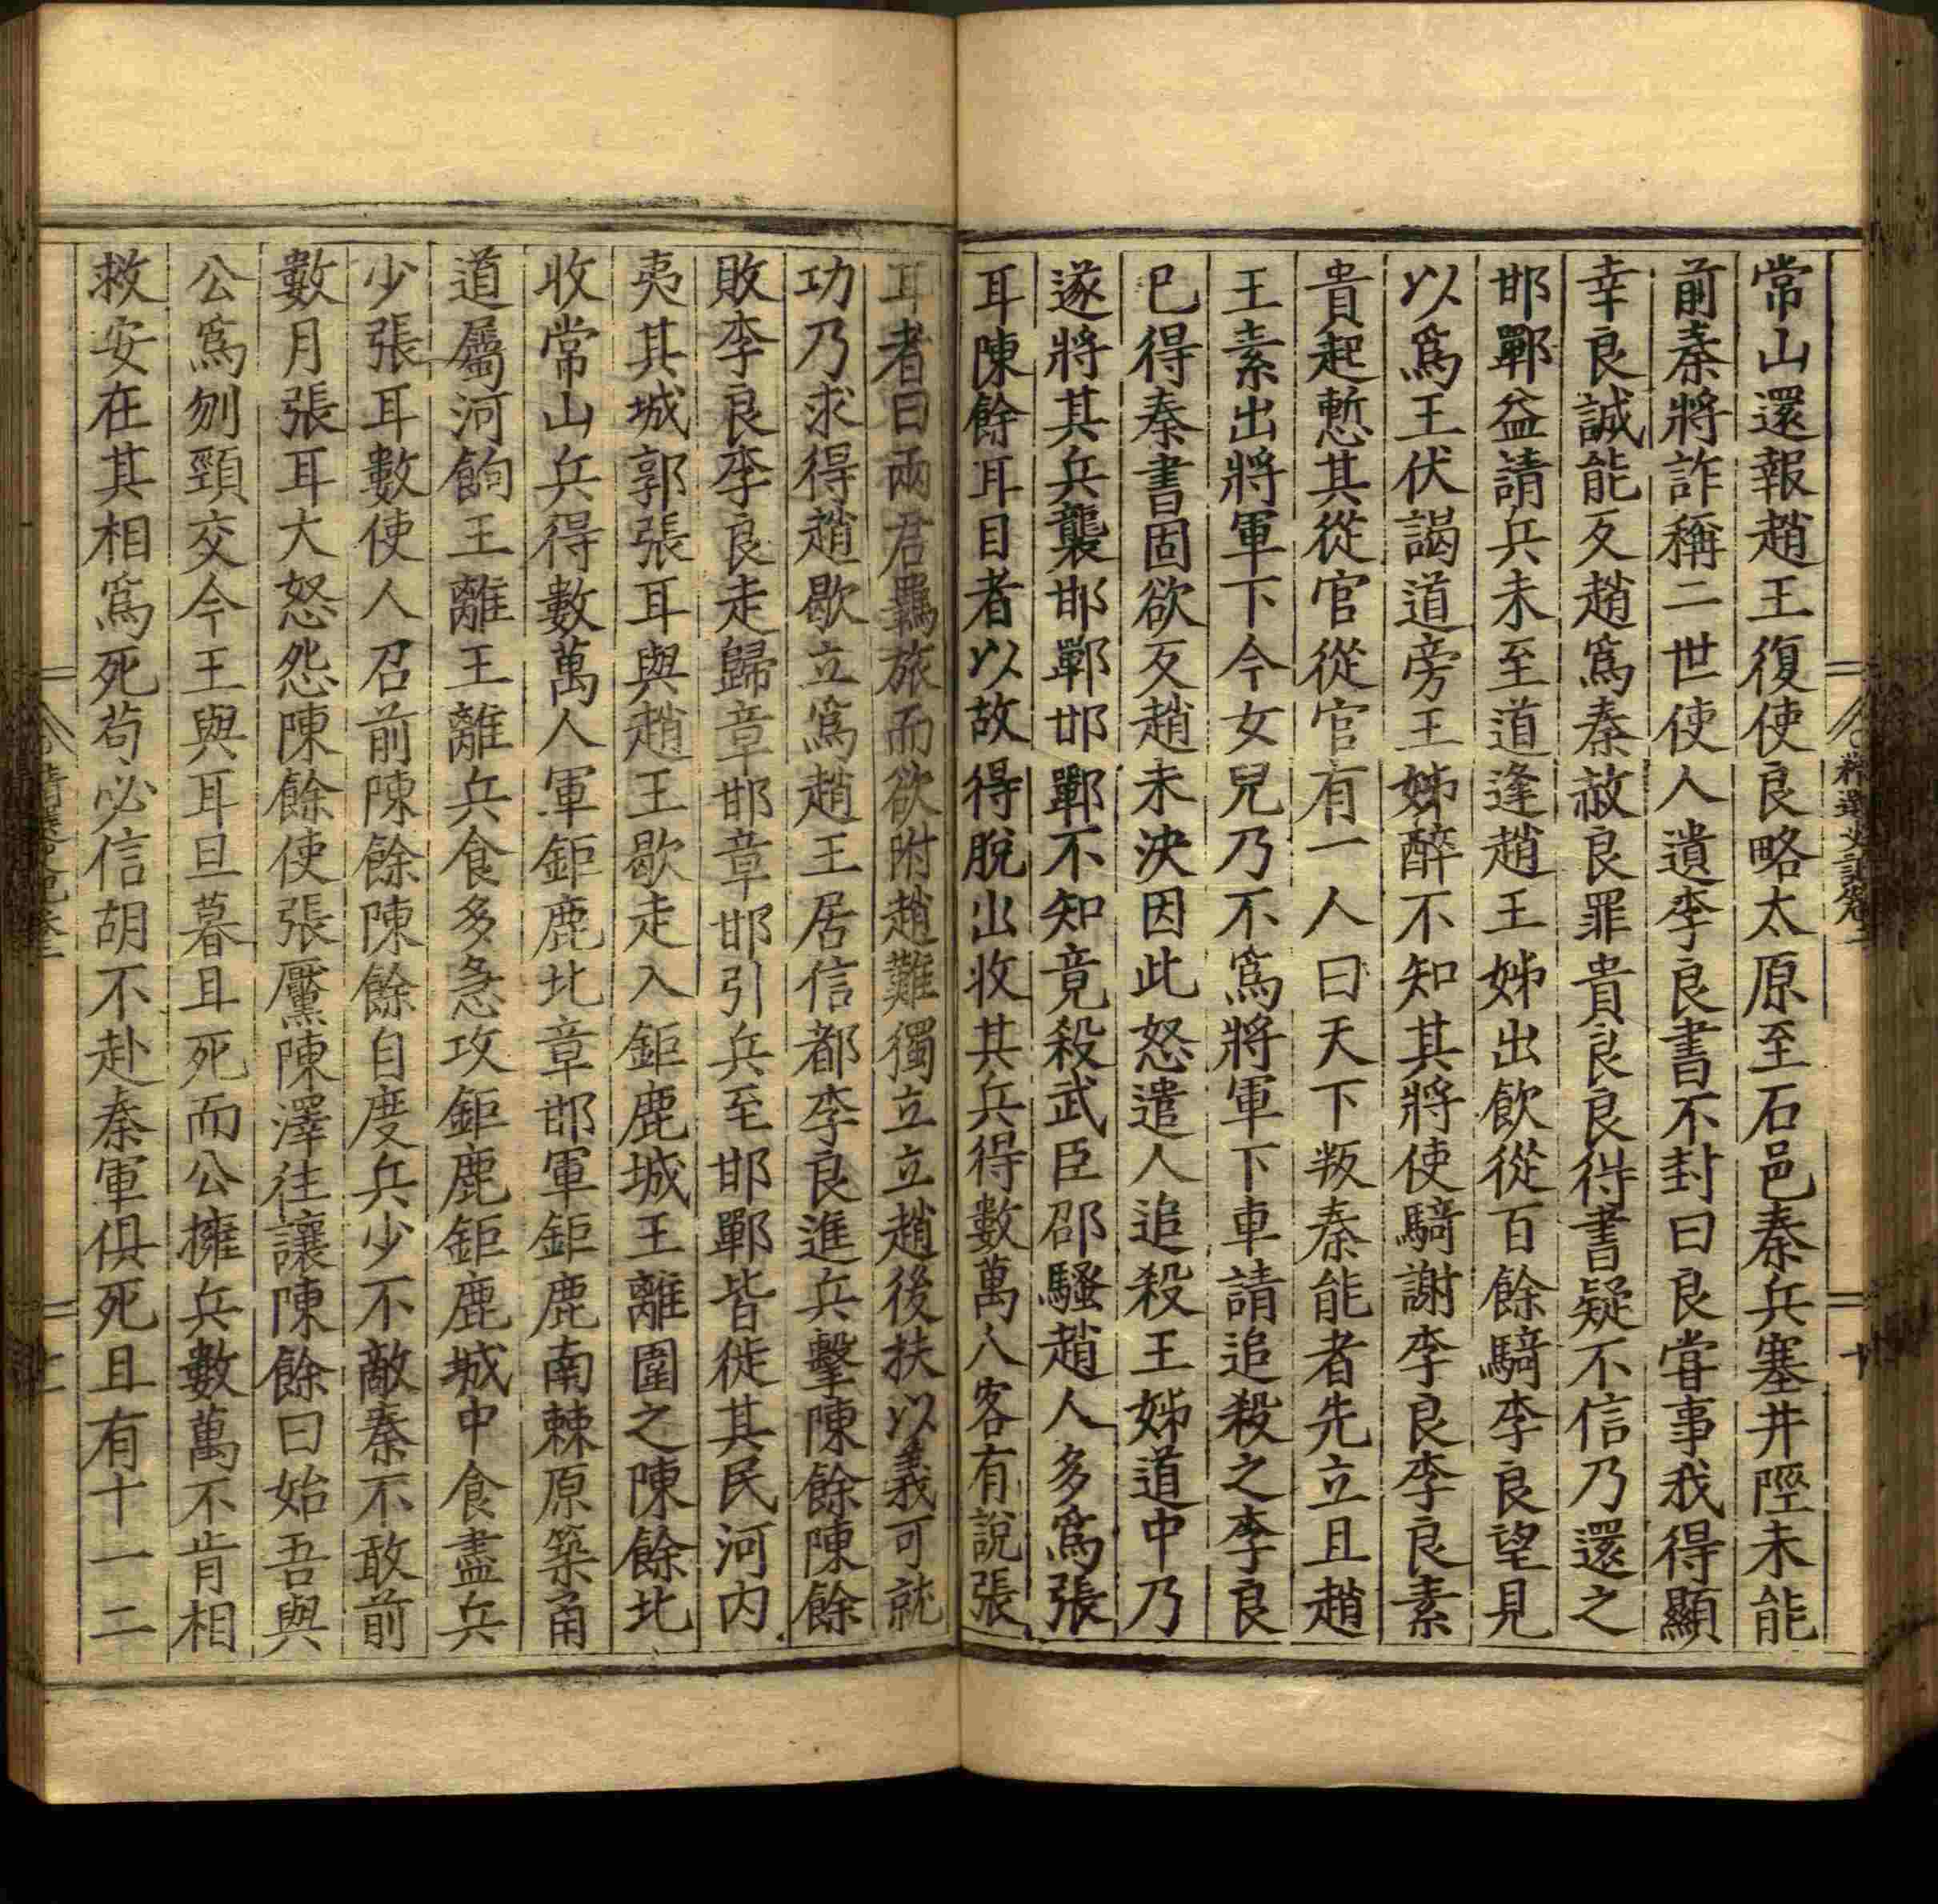 常山還報趙王復使良略太原至石邑秦兵塞井陘未能
前秦將詐稱二世使人遺李良書不封曰良甞事我得顯
幸良誠能反趙爲秦赦良罪貴良良得書疑不信乃還之
邯鄲益請兵未至道逢趙王姊出飲從百餘騎李良望見
以爲王伏謁道旁王姊醉不知其將使騎謝李良李良素
貴起慙其從官從官有一人曰天下叛秦能者先立且趙
王素出將軍下今女兒乃不爲將軍下車請追殺之李良
已得秦書固欲反趙未決因此怒遣人追殺王姊道中乃
遂將其兵襲邯鄲邯鄲不知竟殺武臣邵騷趙人多爲張
耳陳餘耳目者以故得脫出收其兵得數萬人客有說張
耳者曰兩君羈旅而欲附趙難獨立立趙後扶以義可就
功乃求得趙歇立爲趙王居信都李良進兵擊陳餘陳餘
敗李良李良走歸章邯章邯引兵至邯鄲皆徙其民河內
夷其城郭張耳與趙王歇走入鉅鹿城王離圍之陳餘北
收常山兵得數萬人軍鉅鹿北章邯軍鉅鹿南棘原築甬
道屬河餉王離王離兵食多急攻鉅鹿鉅鹿城中食盡兵
少張耳數使人召前陳餘陳餘自度兵少不敵秦不敢前
數月張耳大怒怨陳餘使張黶陳澤往讓陳餘曰始吾與
公爲刎頸交今王與耳旦暮且死而公擁兵數萬不肯相
救安在其相爲死苟必信胡不赴秦軍俱死且有十一二